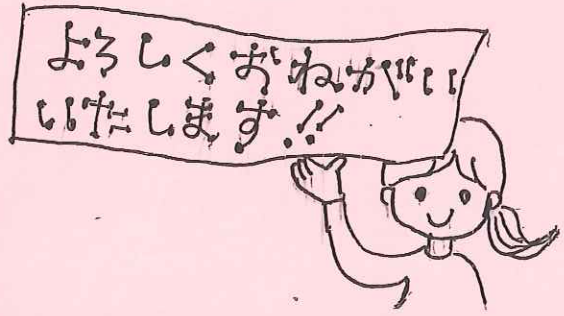 よろしくおねがい
いたします!!